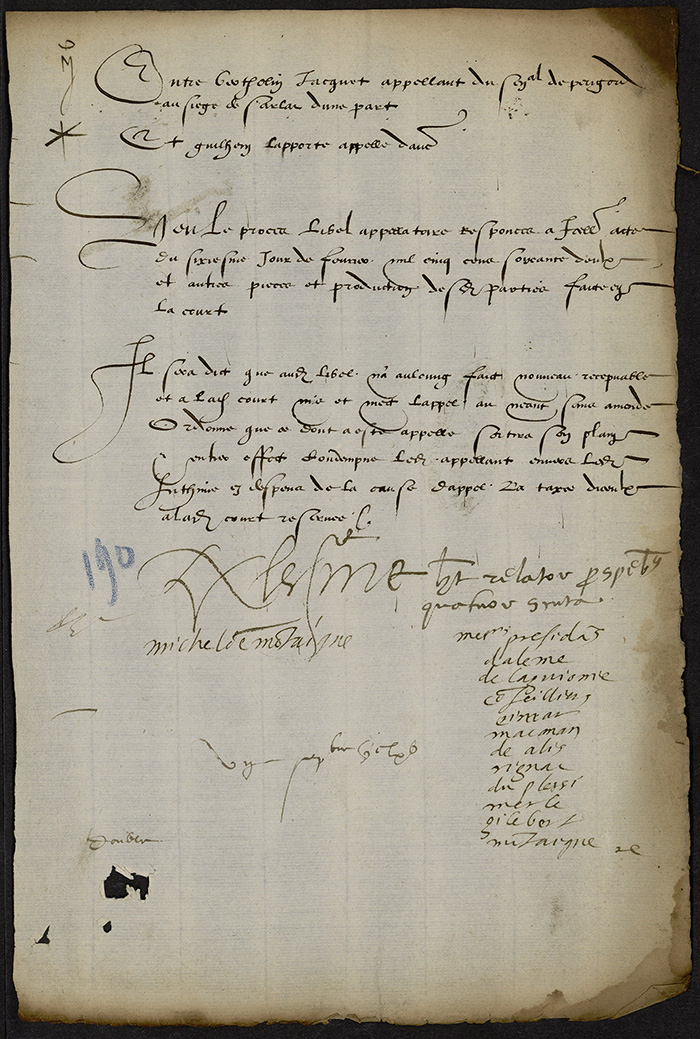 36
Entre Bertholin Jacquet appellant du Sen.al de perigord
au siege de Sarlac dune part
Et guilhem Lapporte appelle dau.e
Veu Le proces Libel appellatoire Responces a Icell. acte
du sixiesme Jour de fevrier mil cinq cens soixante deulx
et autres pieces et production desd parties faite en
La court
Il sera dict que aud Libel na aulcung faict nouveau recepvable
et a Lad court mis et mect Lappel au neant sans amende
Ordonne que ce dont a este appelle sortira son plain
entier effect Condempne Led appellant envers Led
Inthime es despens de la cause dappel La taxe diceulx
a lad court reservee
190
Dalesme
h.t relator pro spebus
quatuor scuta
micheldemotaigne
messrs presidas
daleme
de laguionie
coseilliers
eimar
macanan
de alis
rignac
du plessi
merle
gilebert
motaigne re
vij septbre Vclxv
double